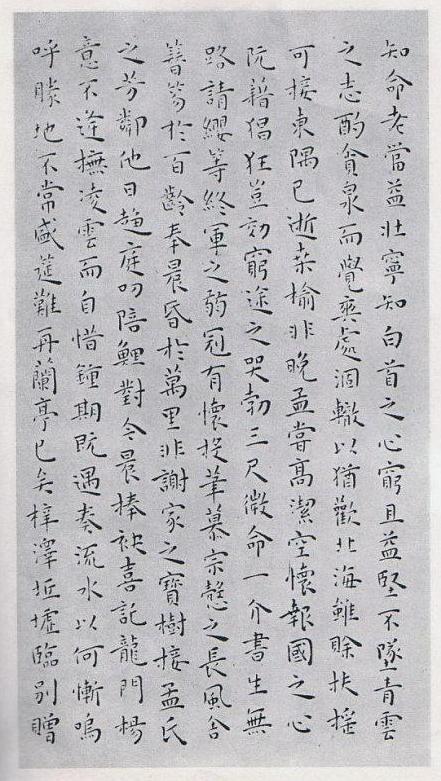 知命老當益壯寧知白首之心窮且益堅不墜青雲
之志酌貪泉而覺爽處涸轍以猶歡北海雖賒扶搖
可接東隅已逝桑榆非晚孟嘗高潔空懷報國之心
阮藉猖狂豈効窮途之哭勃三尺微命一介書生無
路請纓等終軍之弱冠有懷投筆慕宗慤之長風舍
簪笏於百齡奉晨昏於萬里非謝家之寶樹接孟氏
之芳鄰他日趨庭叨陪鯉對今晨捧袂喜託龍門楊
意不逢撫凌雲而自惜鍾期既遇奏流水以何慚嗚
呼勝地不常盛筵難再蘭亭已矣梓澤坵墟臨別贈